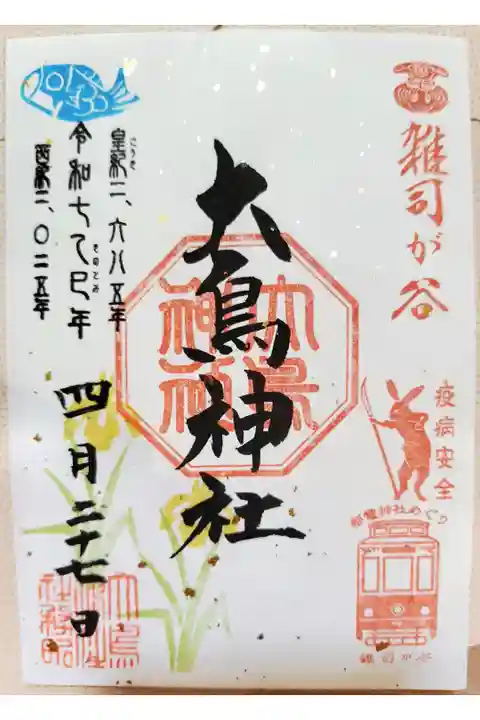 雑司が谷
疫病安全
都電神社めぐり
雑司が谷
大鳥神社
大鳥神社
皇紀二、六八五年
こうき
令和七乙巳年
きのとみ
西暦二、〇二五年
四月二十七日